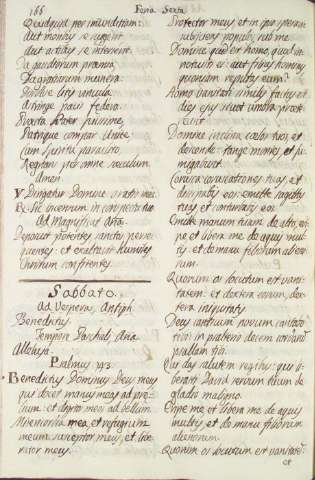 166
Feria Sexta
Quidquid per immunditiam
Aut mentes se ingerit
Aut actibus se interserit.
Da gaudiorum praemia,
Da gratiarum munera
Dissolve litis vincula
Astringe pacis federa.
Praesta Pater piissime,
Patrique compar Unice,
Cum Spiritu paraclito,
Regnans per omne saeculum
Amen
V Dirigatur Domine oratio mea.
R Sicut incensum in conspectu tuo
Ad Magnificat Aña.
Deposuit potentes sanctos perse=
quentes: et exaltavit humiles
Christum confitentes.
Sabbato.
Ad Vesperas, Antiph.
Benedictus
Tempori Paschali Aña
Alleluya.
Psalmus 143.
Benedictus Dominus Deus meus
qui docet manus meas ad prae=
lium: et digitos meos ad bellum.
Misericordia mea, et refugium
meum: susceptor meus, et libe=
rator meus.
Protector meus et in ipso speravi:
subjicis populum sub me.
Domine quid est homo, quod in=
notuisti ei: aut filius hominis,
quoniam reputas eum?
Homo vanitati similis factus est:
dies ejus sicut umbra prae=
Domine inclina caelos tuos, et
descende: tange montes, et fu=
migabunt.
emitte sagittas
tuas, et conturbabis eos.
Emitte manum tuam de alto, eri=
pe et libera me de aquis mul=
tis: et de manu filiorum alieno=
rum.
Quorum os locutum est vani=
tatem: et dextera eorum, dex=
tera iniquitatis.
Deus canticum novum cantabo
tibi: in psalterio decem cordarum
psallam tibi.
Qui das salutem regibus: qui li=
berasti David servum tuum de
gladio maligno.
Eripe me, et libera me de aquis
multis, et de manu filiorum
alienorum.
Quorum os locutum est vanitatem: